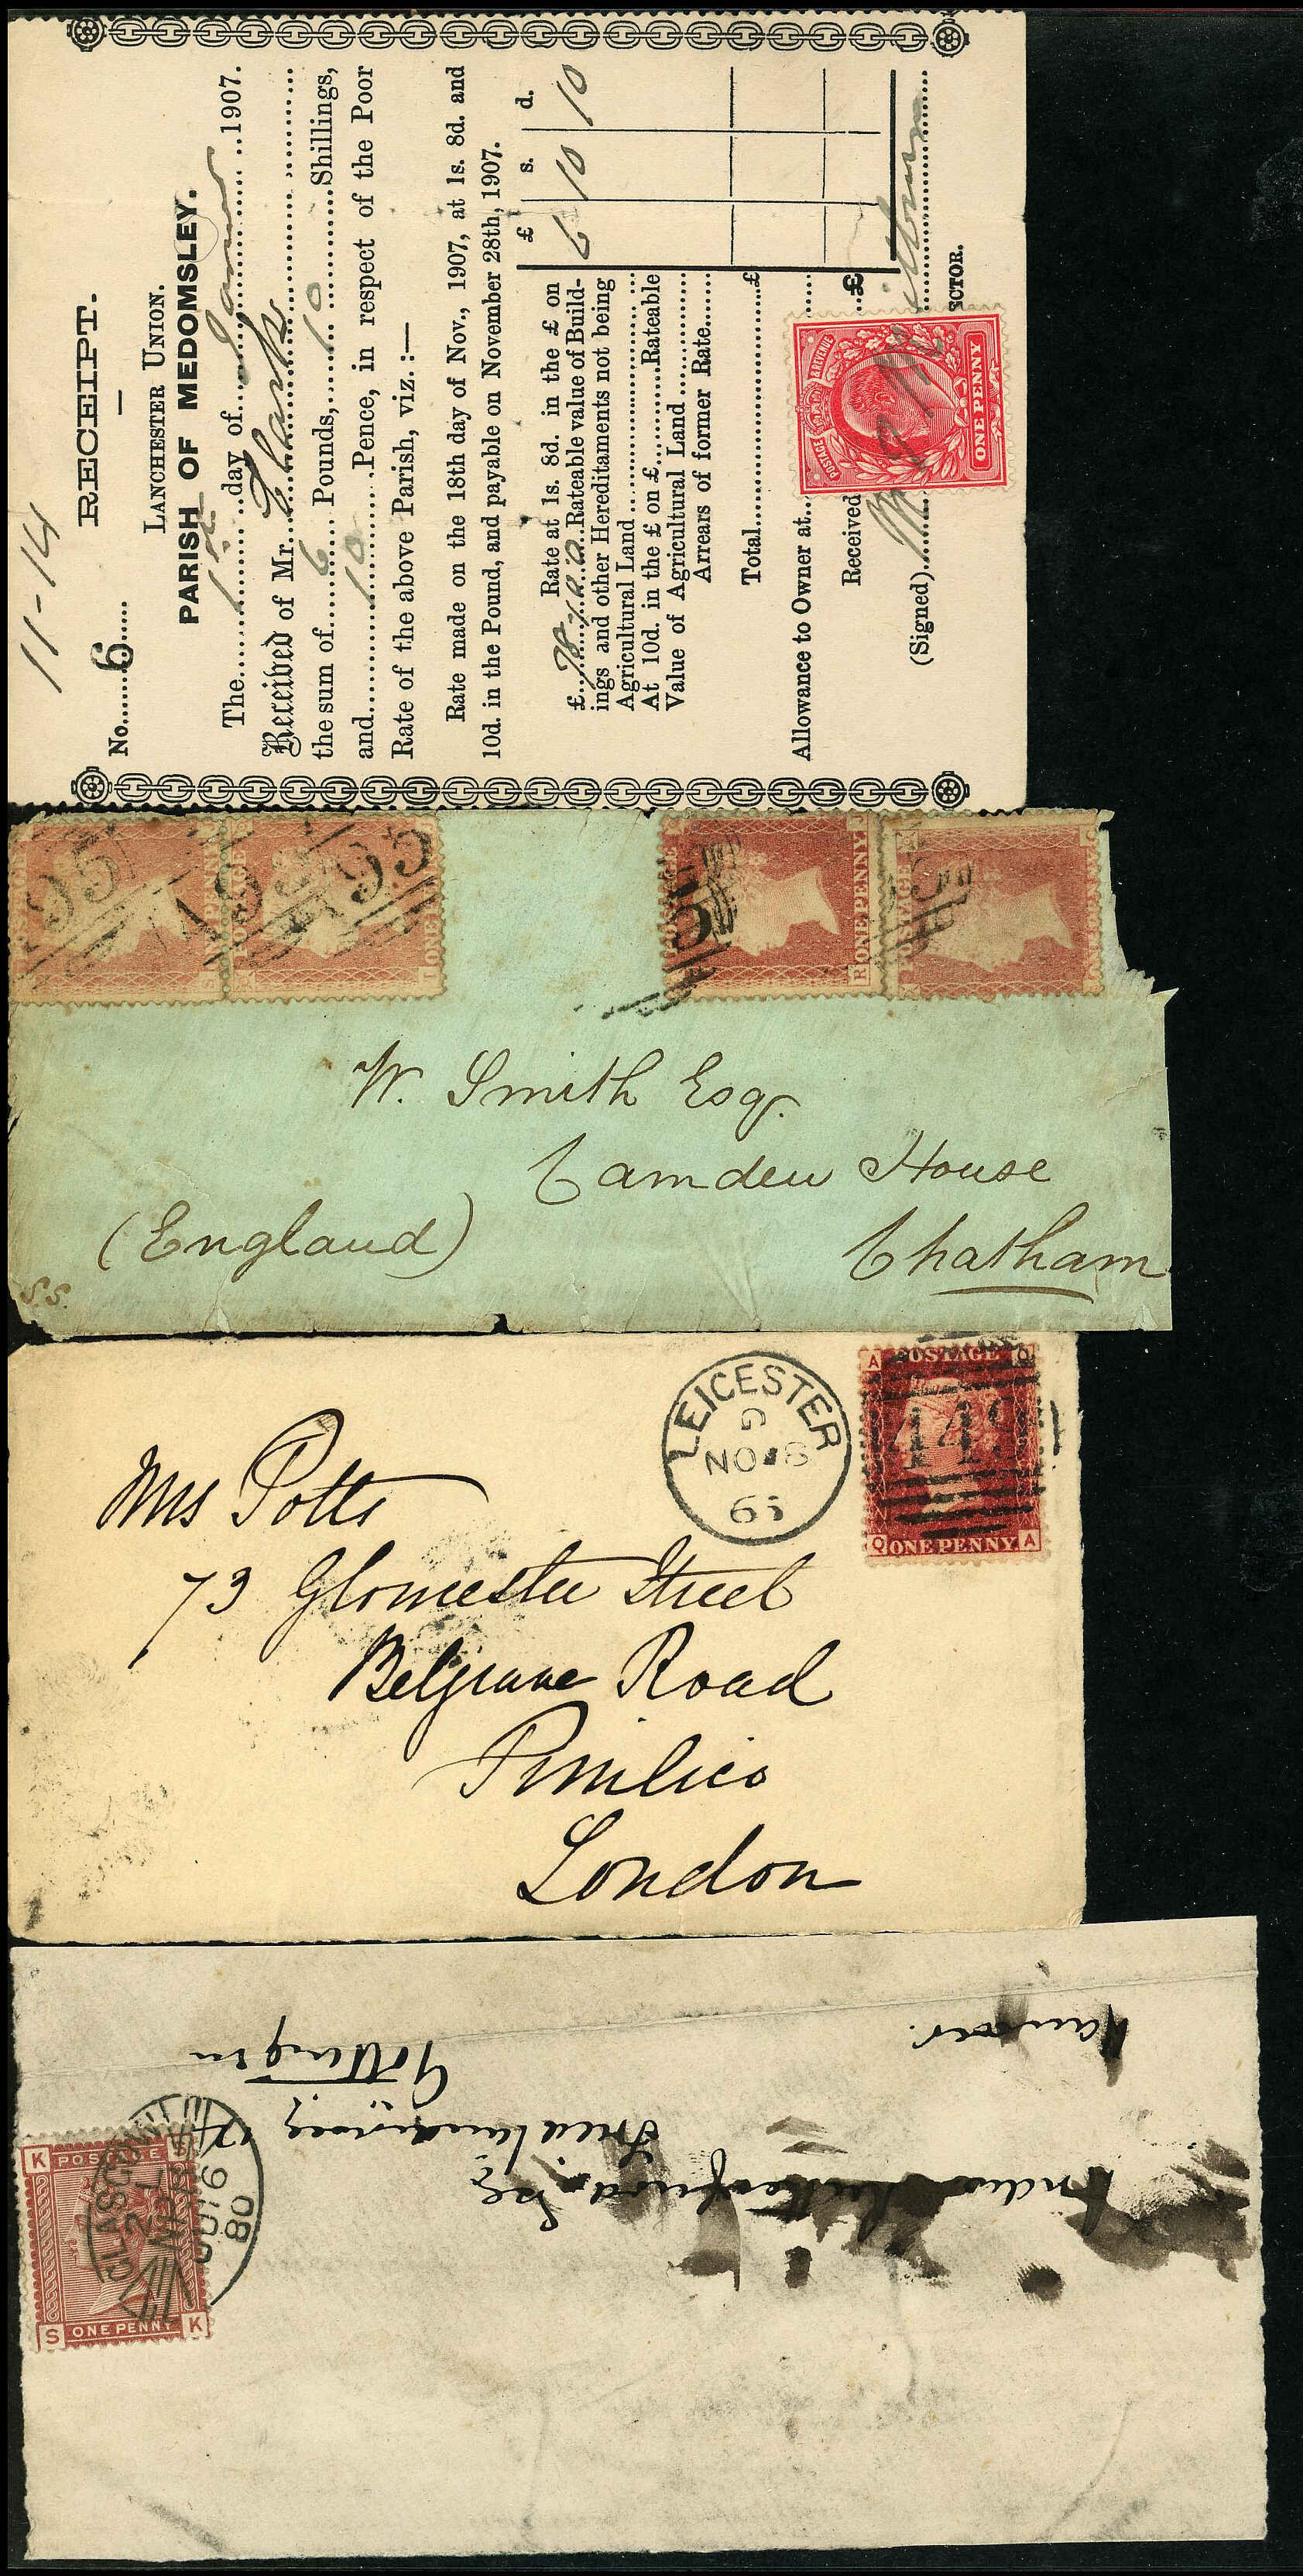 11-14
RECEIPT.
No. 6
LANCHESTER UNION.
PARISH OF MEDOMSLEY.
The day of 1907.
Received of Mr.
the sum of 6 Pounds, 10 Shillings,
and 10 Pence, in respect of the Poor
Rate of the above Parish, viz. :—
Rate made on the 18th day of Nov., 1907, at 1s. 8d. and
10d. in the Pound, and payable on November 28th, 1907.
£ s. d.
Rate at 1s. 8d. in the £ on
£ Rateable value of Build-
ings and other Hereditaments not being
Agricultural Land
6 10 10
At 10d. in the £ on £ Rateable
Value of Agricultural Land
Arrears of former Rate
Total £
Allowance to Owner at
Received £
(Signed)
CTOR.
POSTAGE & REVENUE
ONE PENNY
POSTAGE
ONE PENNY
W. Smith Esqr.
Camden House
(England)
Chatham
S.S.
LEICESTER
G
NO 8
65
A POSTAGE Q
449
Q ONE PENNY A
Mrs Potts
73 Gloucester Street
Belgrave Road
Pimlico
London
K POSTAGE S
S ONE PENNY K
GLASGOW
80
Göttingen
Hannover.